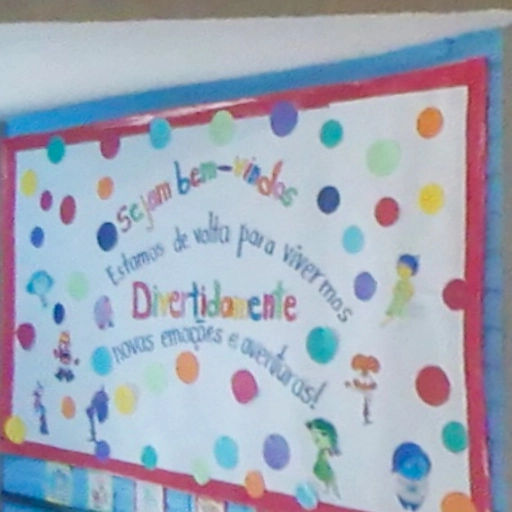 Sejam bem-vindos
Estamos de volta para vivermos
Divertidamente
novas emoções e aventuras!